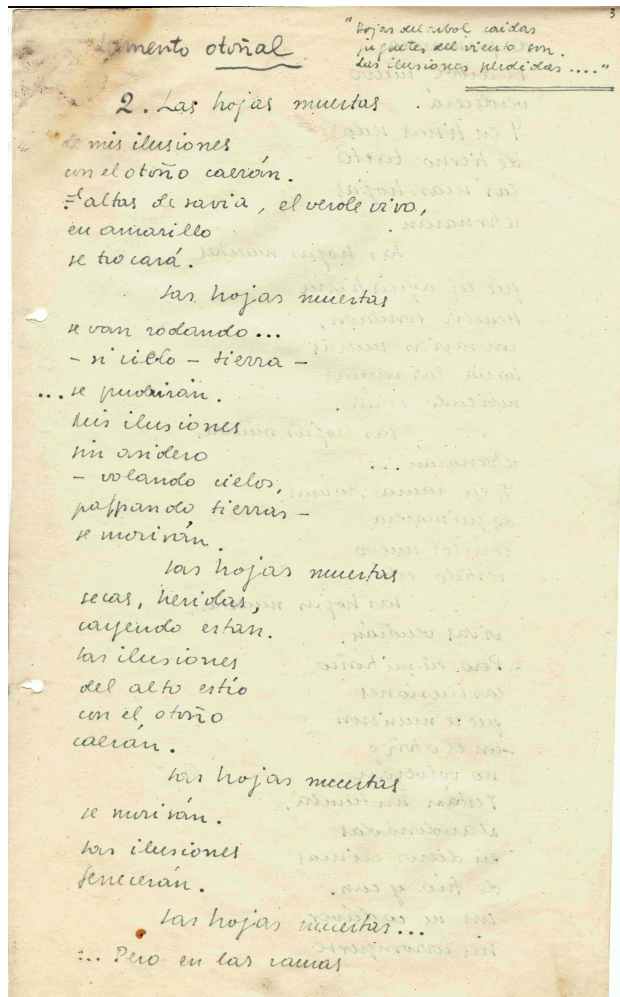 3
"Hojas del árbol caídas
juguetes del viento son.
Las ilusiones perdidas...."
Lamento otoñal
2. Las hojas muertas
de mis ilusiones
con el otoño caerán.
Faltas de savia, el verde vivo,
en amarillo
se trocará.
Las hojas muertas
se van rodando...
- si cielo - tierra -
...se pudrirán.
Mis ilusiones
sin asidero
- volando cielos,
palpando tierras -
se morirán.
Las hojas muertas
secas, heridas,
cayendo están.
Las ilusiones
del alto estío
con el otoño
caerán.
Las hojas muertas
se morirán.
Las ilusiones
fenecerán.
Las hojas muertas...
... Pero en las ramas